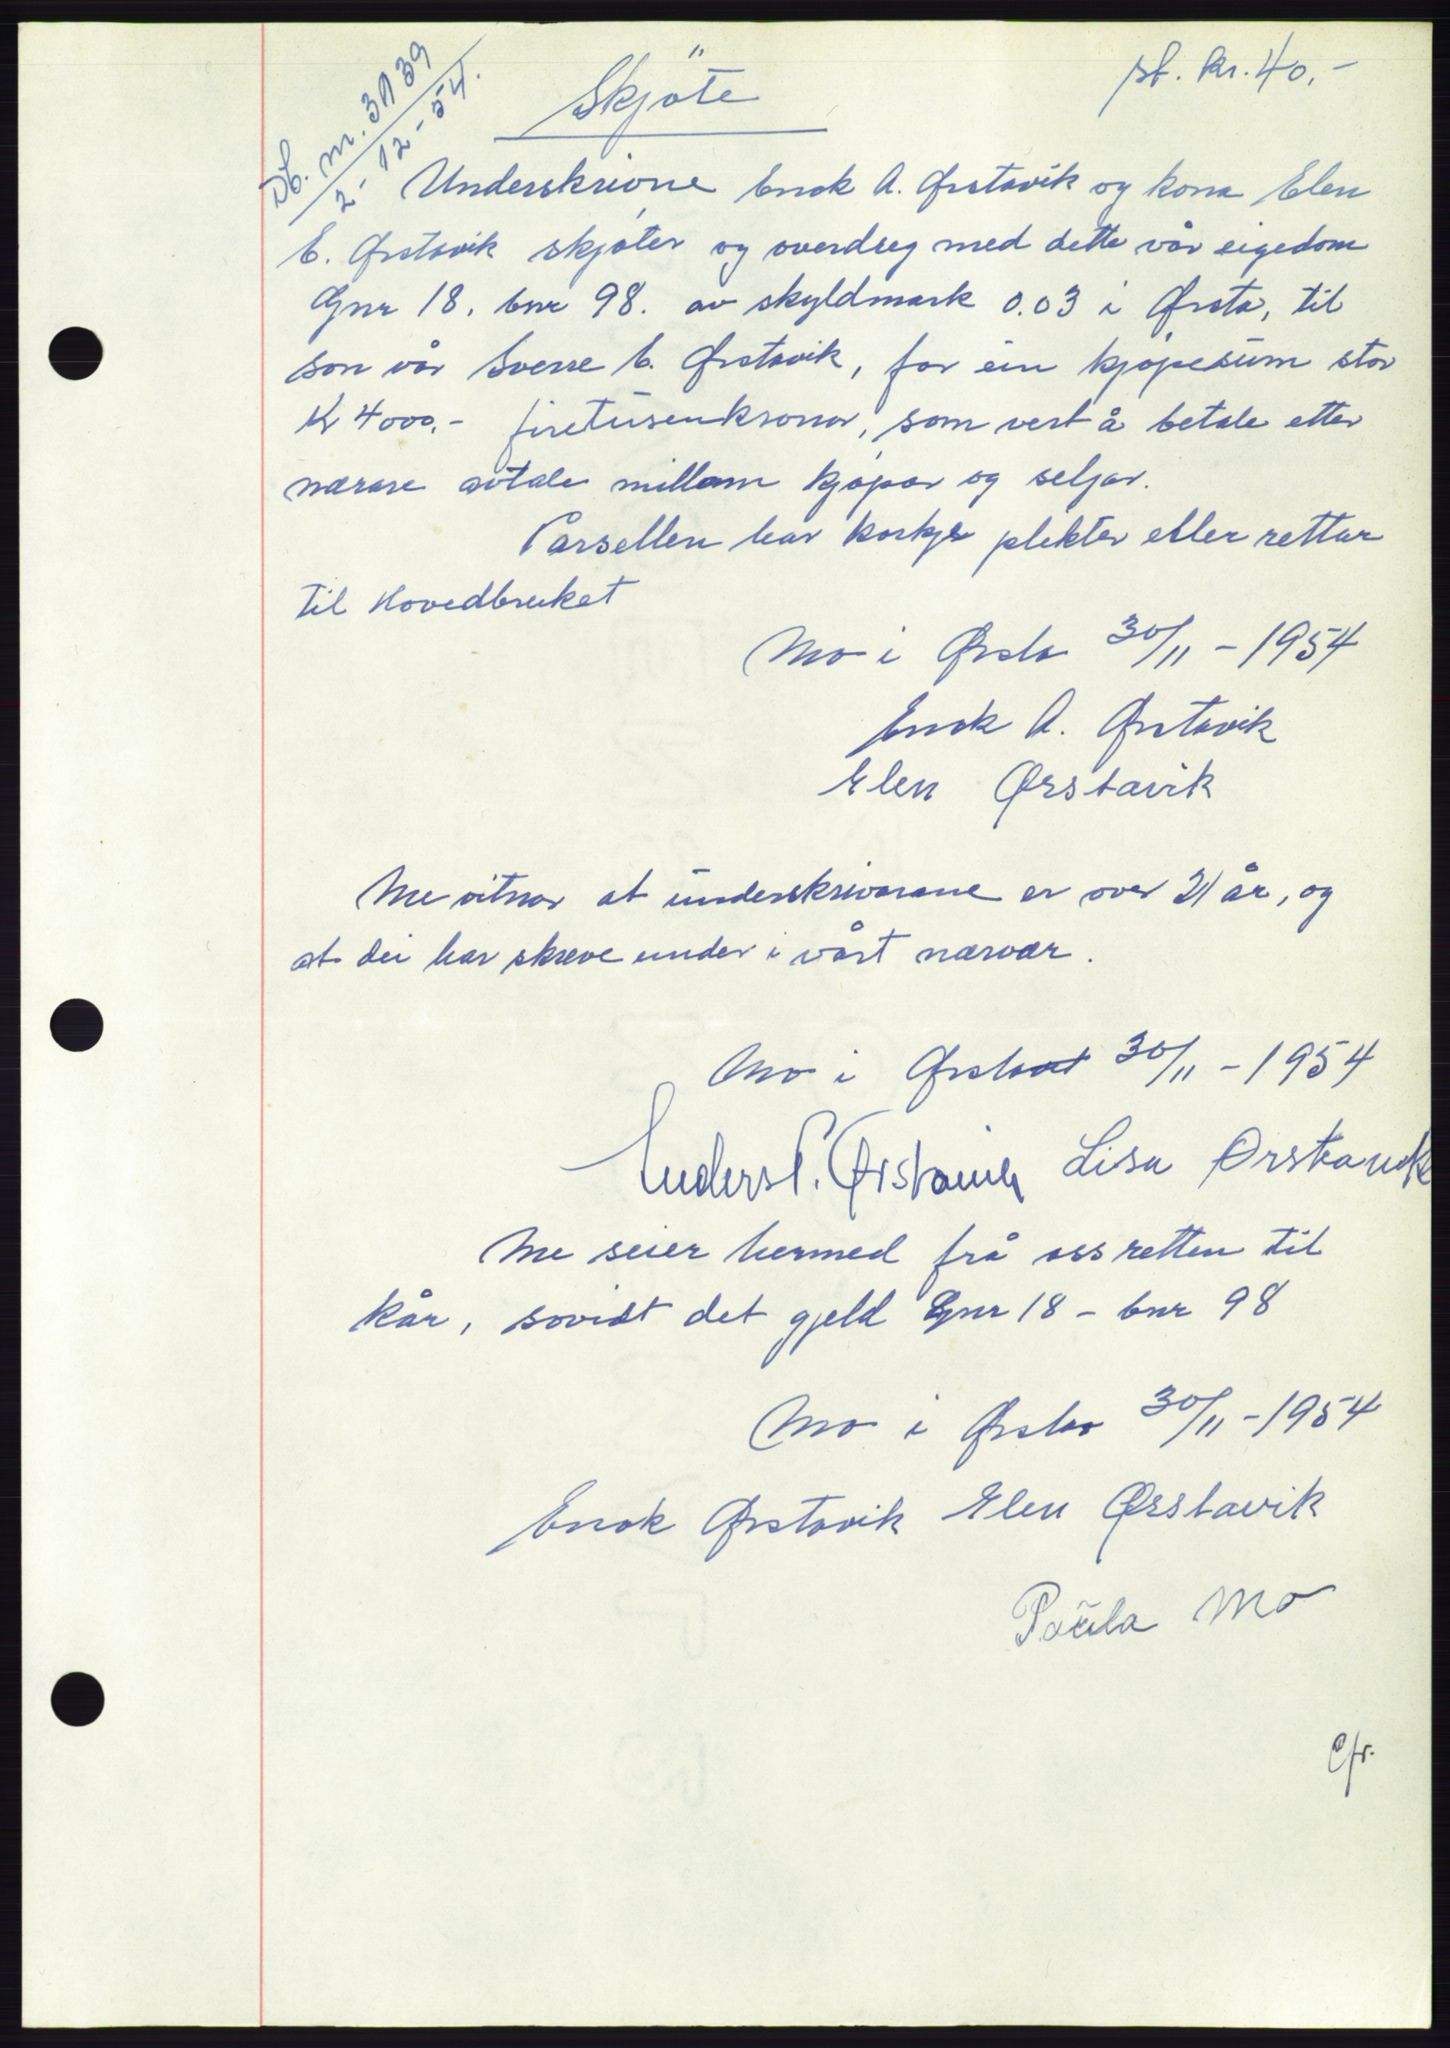 Db. nr. 3139
2-12-54.
Skjöte
st. kr. 40.-
Underskrivne Enok A. Ørstavik og kona Elen
E. Ørstavik skjøter og overdreg med dette vår eigedom
Gnr 18. bnr 98. av skyldmark 0.03 i Ørsta, til
son vår Sverre E. Ørstavik, for ein kjøpesum stor
Kr 4000.- firetusenkronor, som vert å betale etter
nærare avtale millom kjøpar og seljar.
Parsellen har korkje plikter eller rettar
til Hovedbruket
Mo i Ørsta 30/11-1954
Enok A. Ørstavik
Elen Ørstavik
Me vitnar at underskrivarane er over 21 år, og
at dei har skreve under i vårt nærvær.
Mo i Ørsta 30/11-1954
Anders P. Ørstavik Lisa Ørstavik
Me seier hermed frå oss retten til
kår, sovidt det gjeld Gnr 18 - bnr 98
Mo i Ørsta 30/11-1954
Enok Ørstavik Elen Ørstavik
Paula Mo
Cfr.